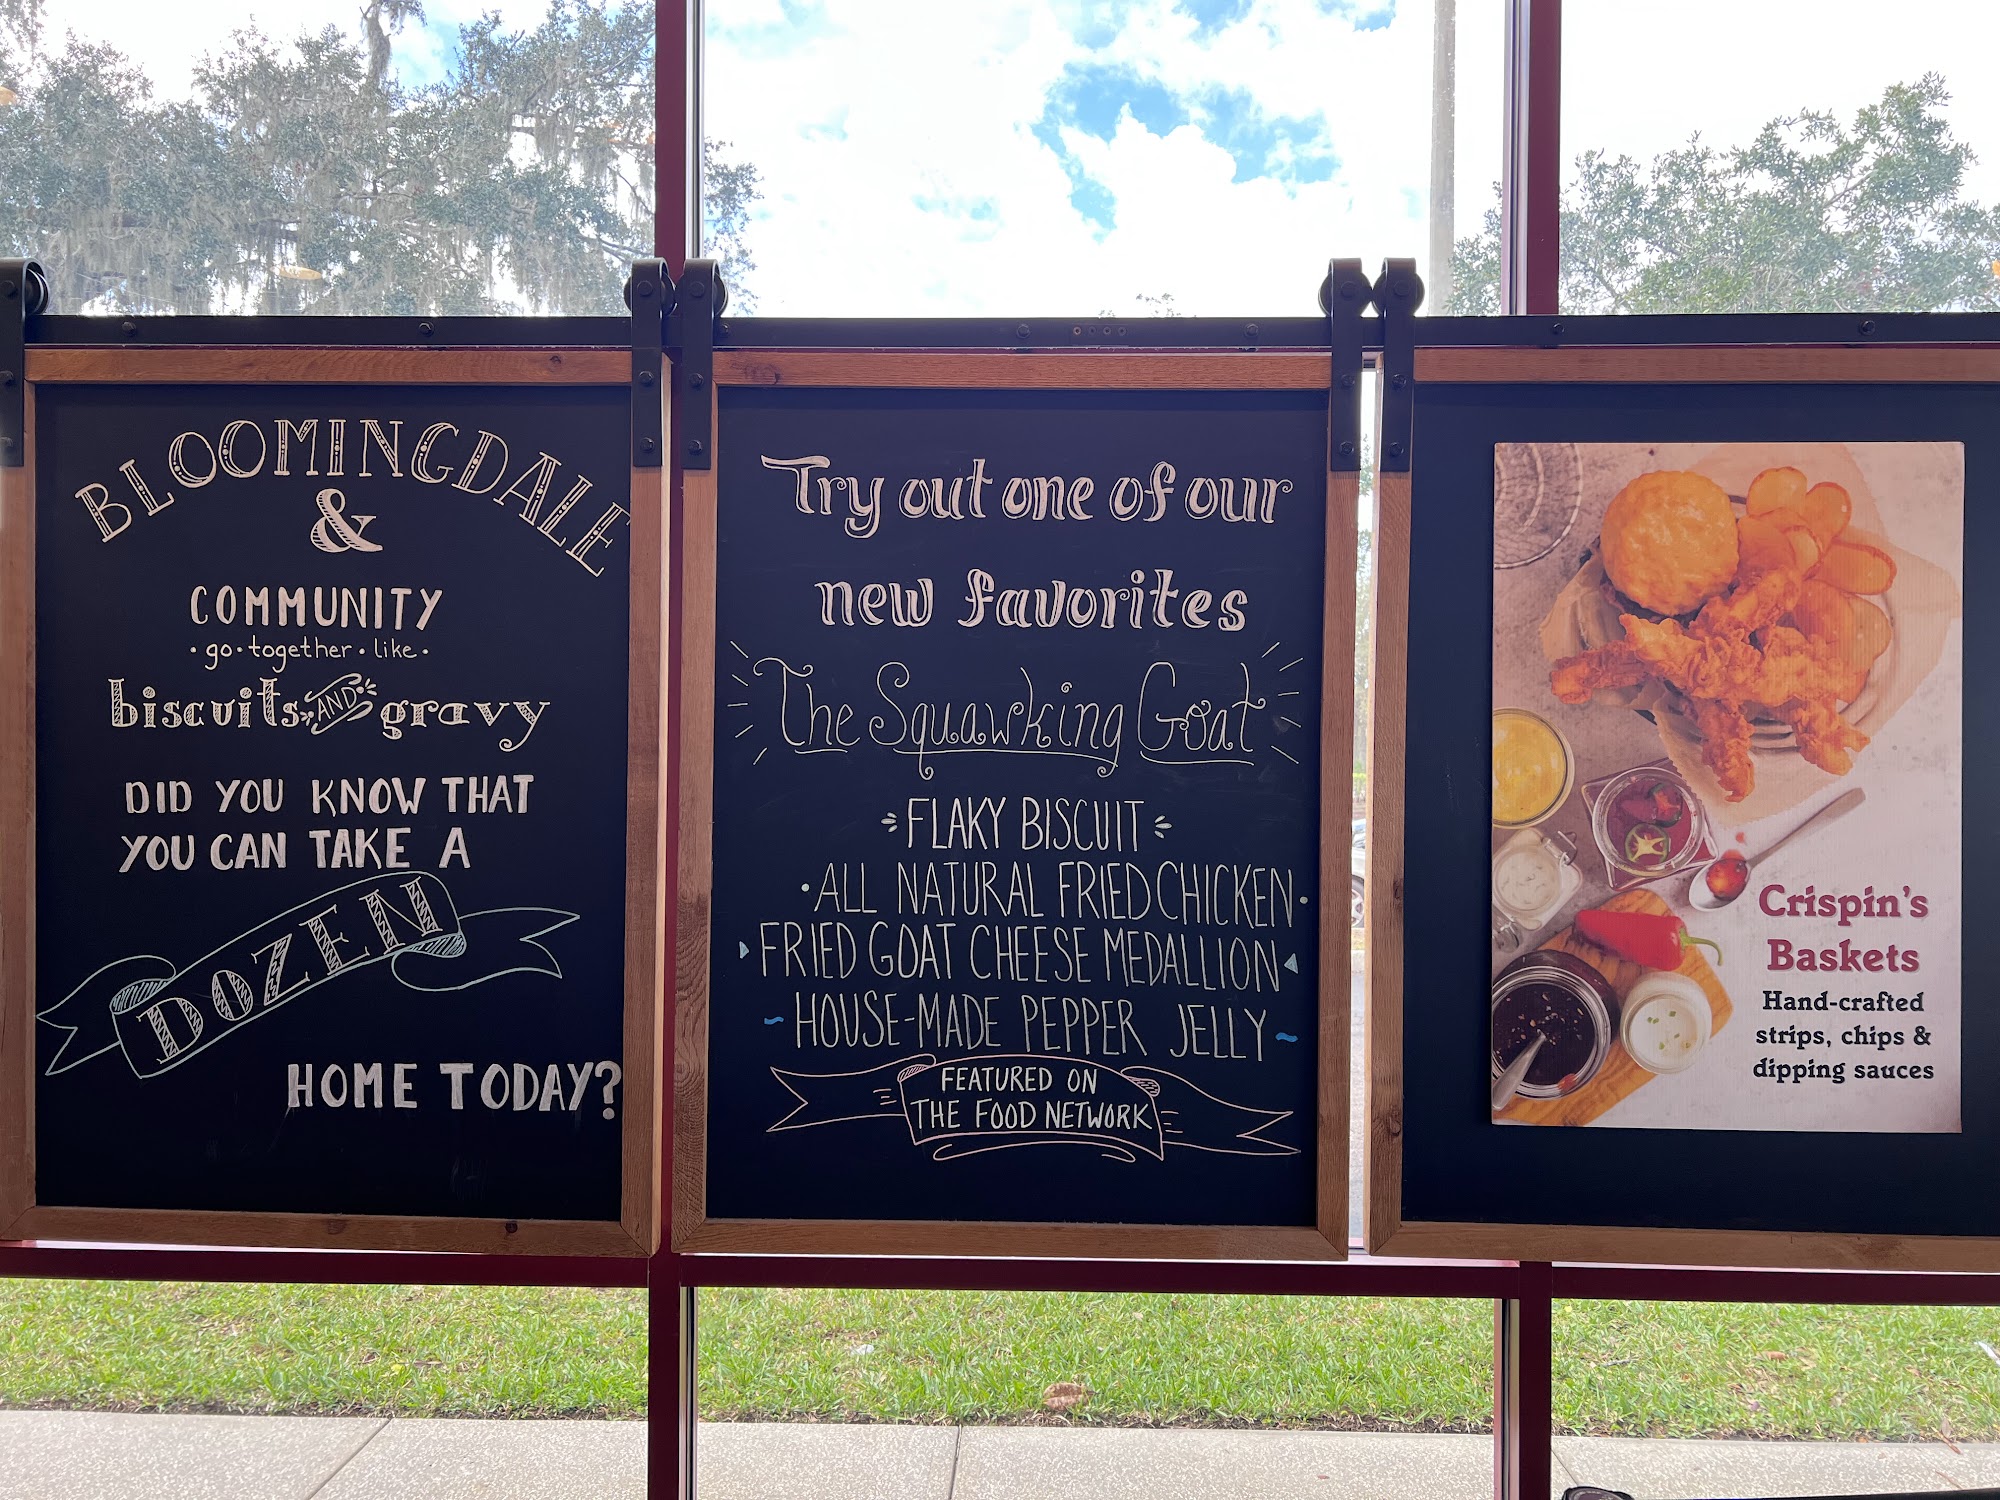 BLOOMINGDALE
&
COMMUNITY
·go·together·like·
biscuits AND gravy
DID YOU KNOW THAT
YOU CAN TAKE A
DOZEN
HOME TODAY?
Try out one of our
new favorites
The Squawking Goat
FLAKY BISCUIT
·ALL NATURAL FRIED CHICKEN·
FRIED GOAT CHEESE MEDALLION
~HOUSE-MADE PEPPER JELLY~
FEATURED ON
THE FOOD NETWORK
Crispin's
Baskets
Hand-crafted
strips, chips &
dipping sauces